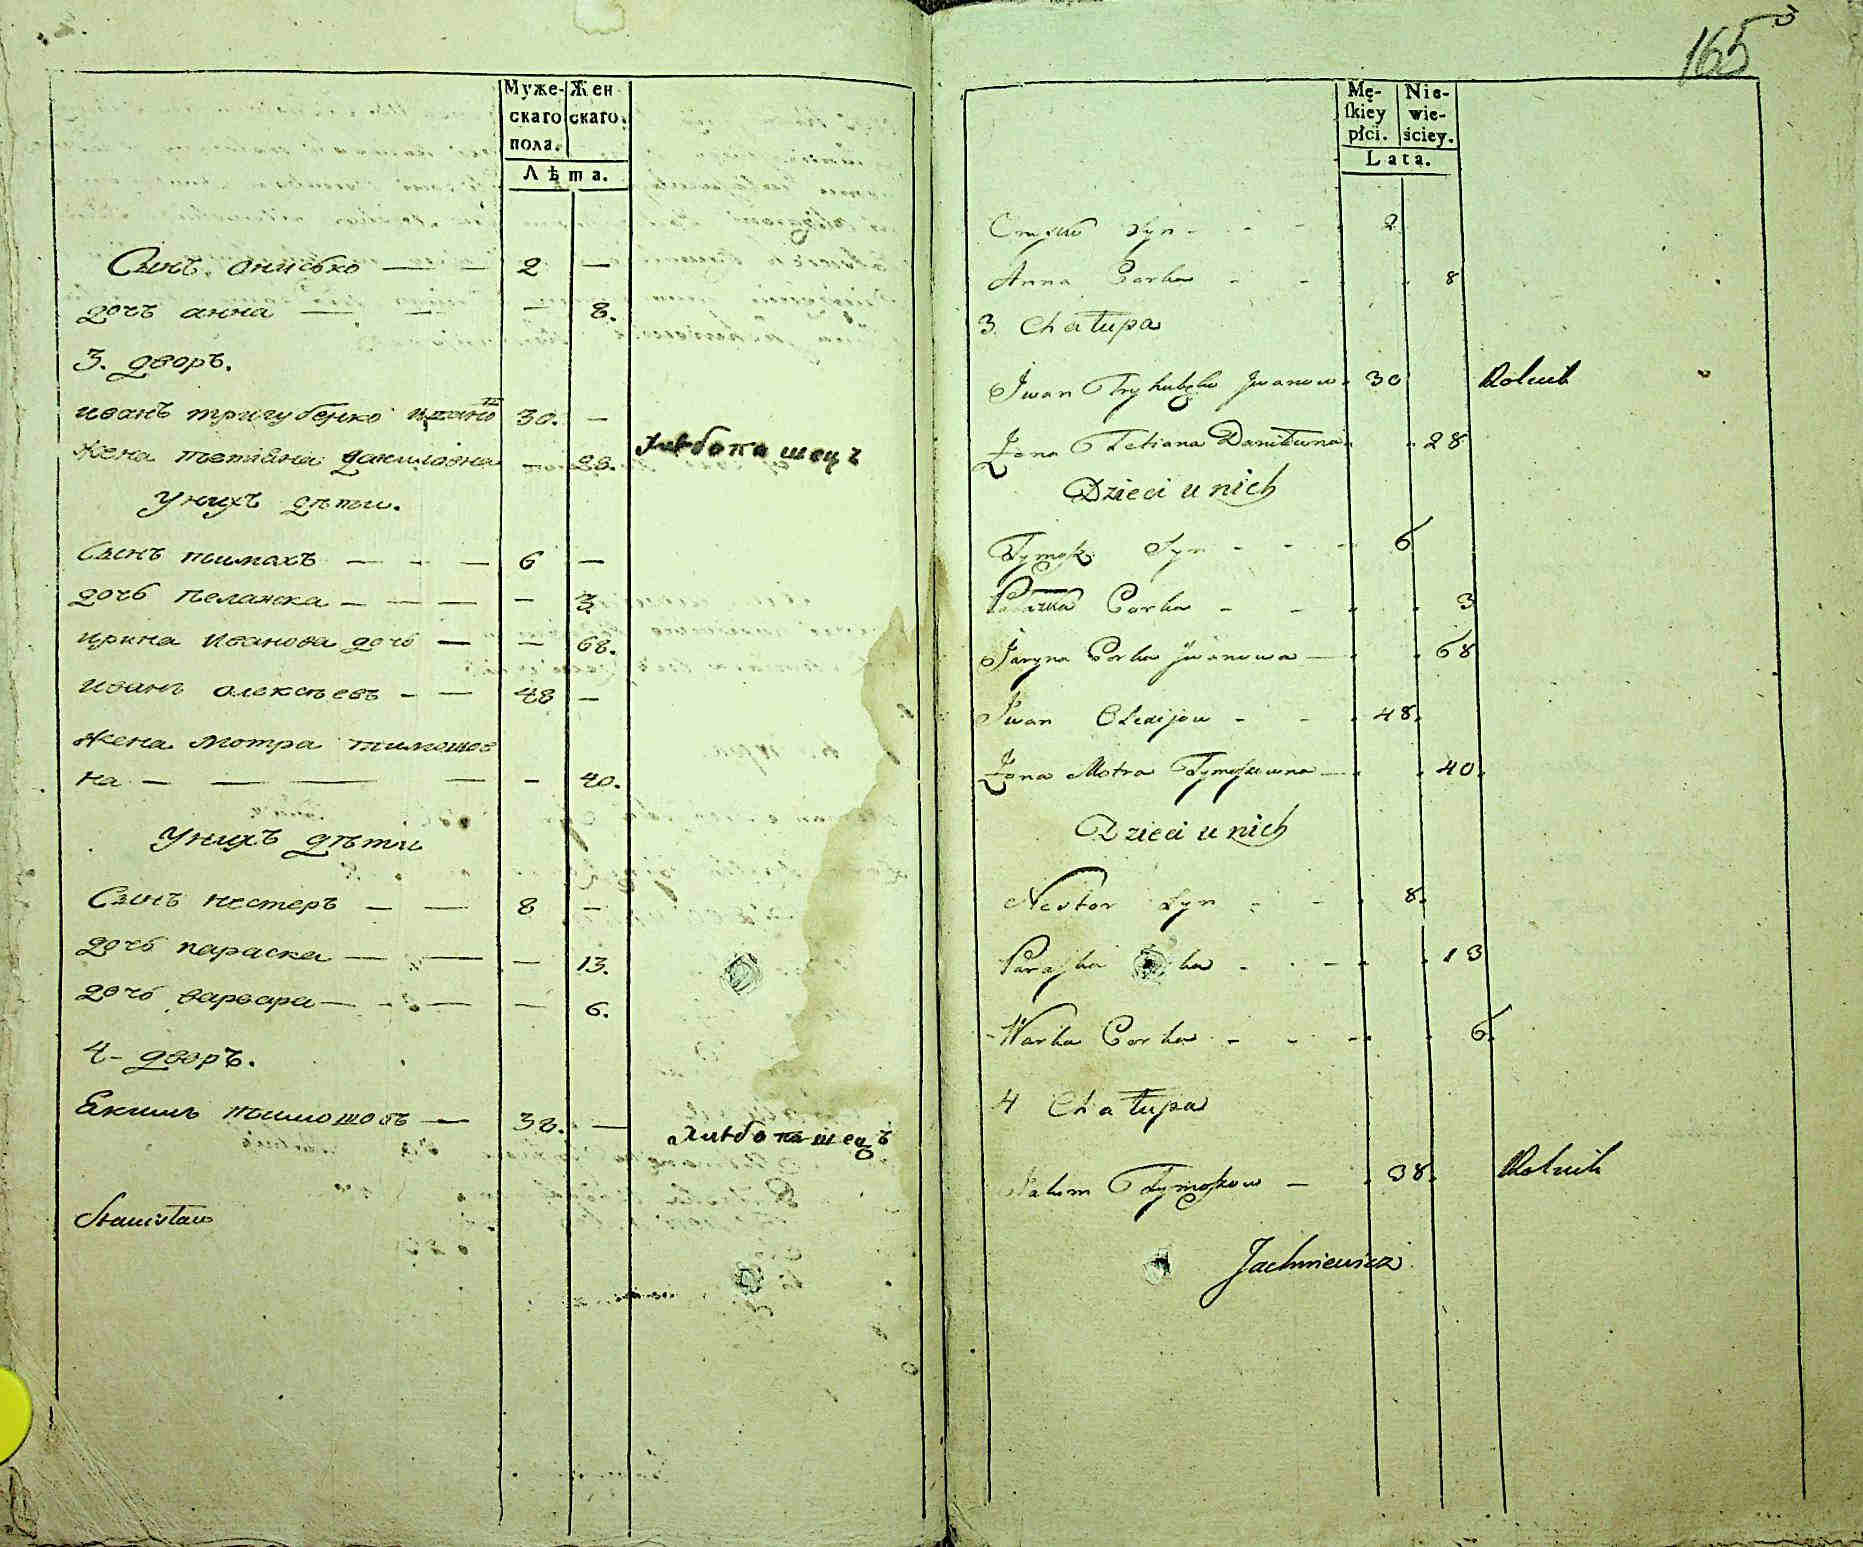 Муже-
скаго
пола.
Жен
скаго.
Лѣта.
Сынъ Онисько — — 2 —
дочъ анна — — — 8.
3. дворъ.
иванъ тригубенко 30. —
Жена татіана даниловна — 28. Хлебопашецъ
у нихъ дѣти.
Сынъ тимохъ — — — 6 —
дочь пелажка — — — — 3.
ирина иванова дочь — — 68.
иванъ алексѣевъ — — 48 —
Жена мотра тимошов
на — — — — — 40.
у нихъ дѣти
Сынъ нестеръ — — 8 —
дочь параска — — — 13.
дочь варвара — — — — 6.
4 - дворъ.
Екимъ тимошовъ — 38. — Хлебопашецъ
Stanisław
165
Mę-
skiey
płci.
Nie-
wie-
ściey.
Lata.
Syn - - - 2
Anna Corka - - 8
3. Chałupa
Iwan Iwanow 30 Rolnik
Żona Tetiana Daniłowna 28
Dzieci u nich
Tymosz Syn - - - 6
Corka - - 3
Jaryna Corka Iwanowa — 68
Iwan - - 48.
Żona Motra Tymoszowna — 40.
Dzieci u nich
Nestor Syn - - 8.
Paraska ka - - - 13
Warka Corka - - - 6.
4 Chałupa
Jakim Tymoszow — 38. Rolnik
Jachniewicz